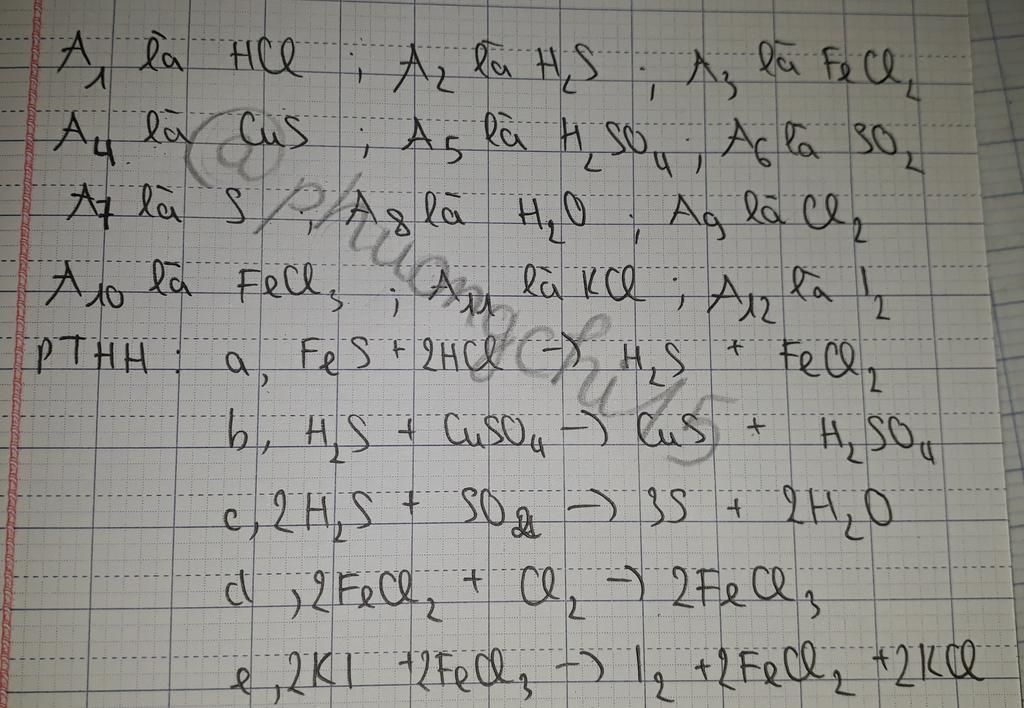 A₁ là HCl ; A₂ là H₂S ; A₃ là FeCl₂
A₄ là CuS ; A₅ là H₂SO₄ ; A₆ là SO₂
A₇ là S ; A₈ là H₂O ; A₉ là Cl₂
A₁₀ là FeCl₃ ; A₁₁ là KCl ; A₁₂ là I₂
PTHH : a, FeS + 2HCl → H₂S + FeCl₂
b, H₂S + CuSO₄ → CuS + H₂SO₄
c, 2H₂S + SO₂ → 3S + 2H₂O
d, 2FeCl₂ + Cl₂ → 2FeCl₃
e, 2KI + 2FeCl₃ → I₂ + 2FeCl₂ + 2KCl
@phuongchu15